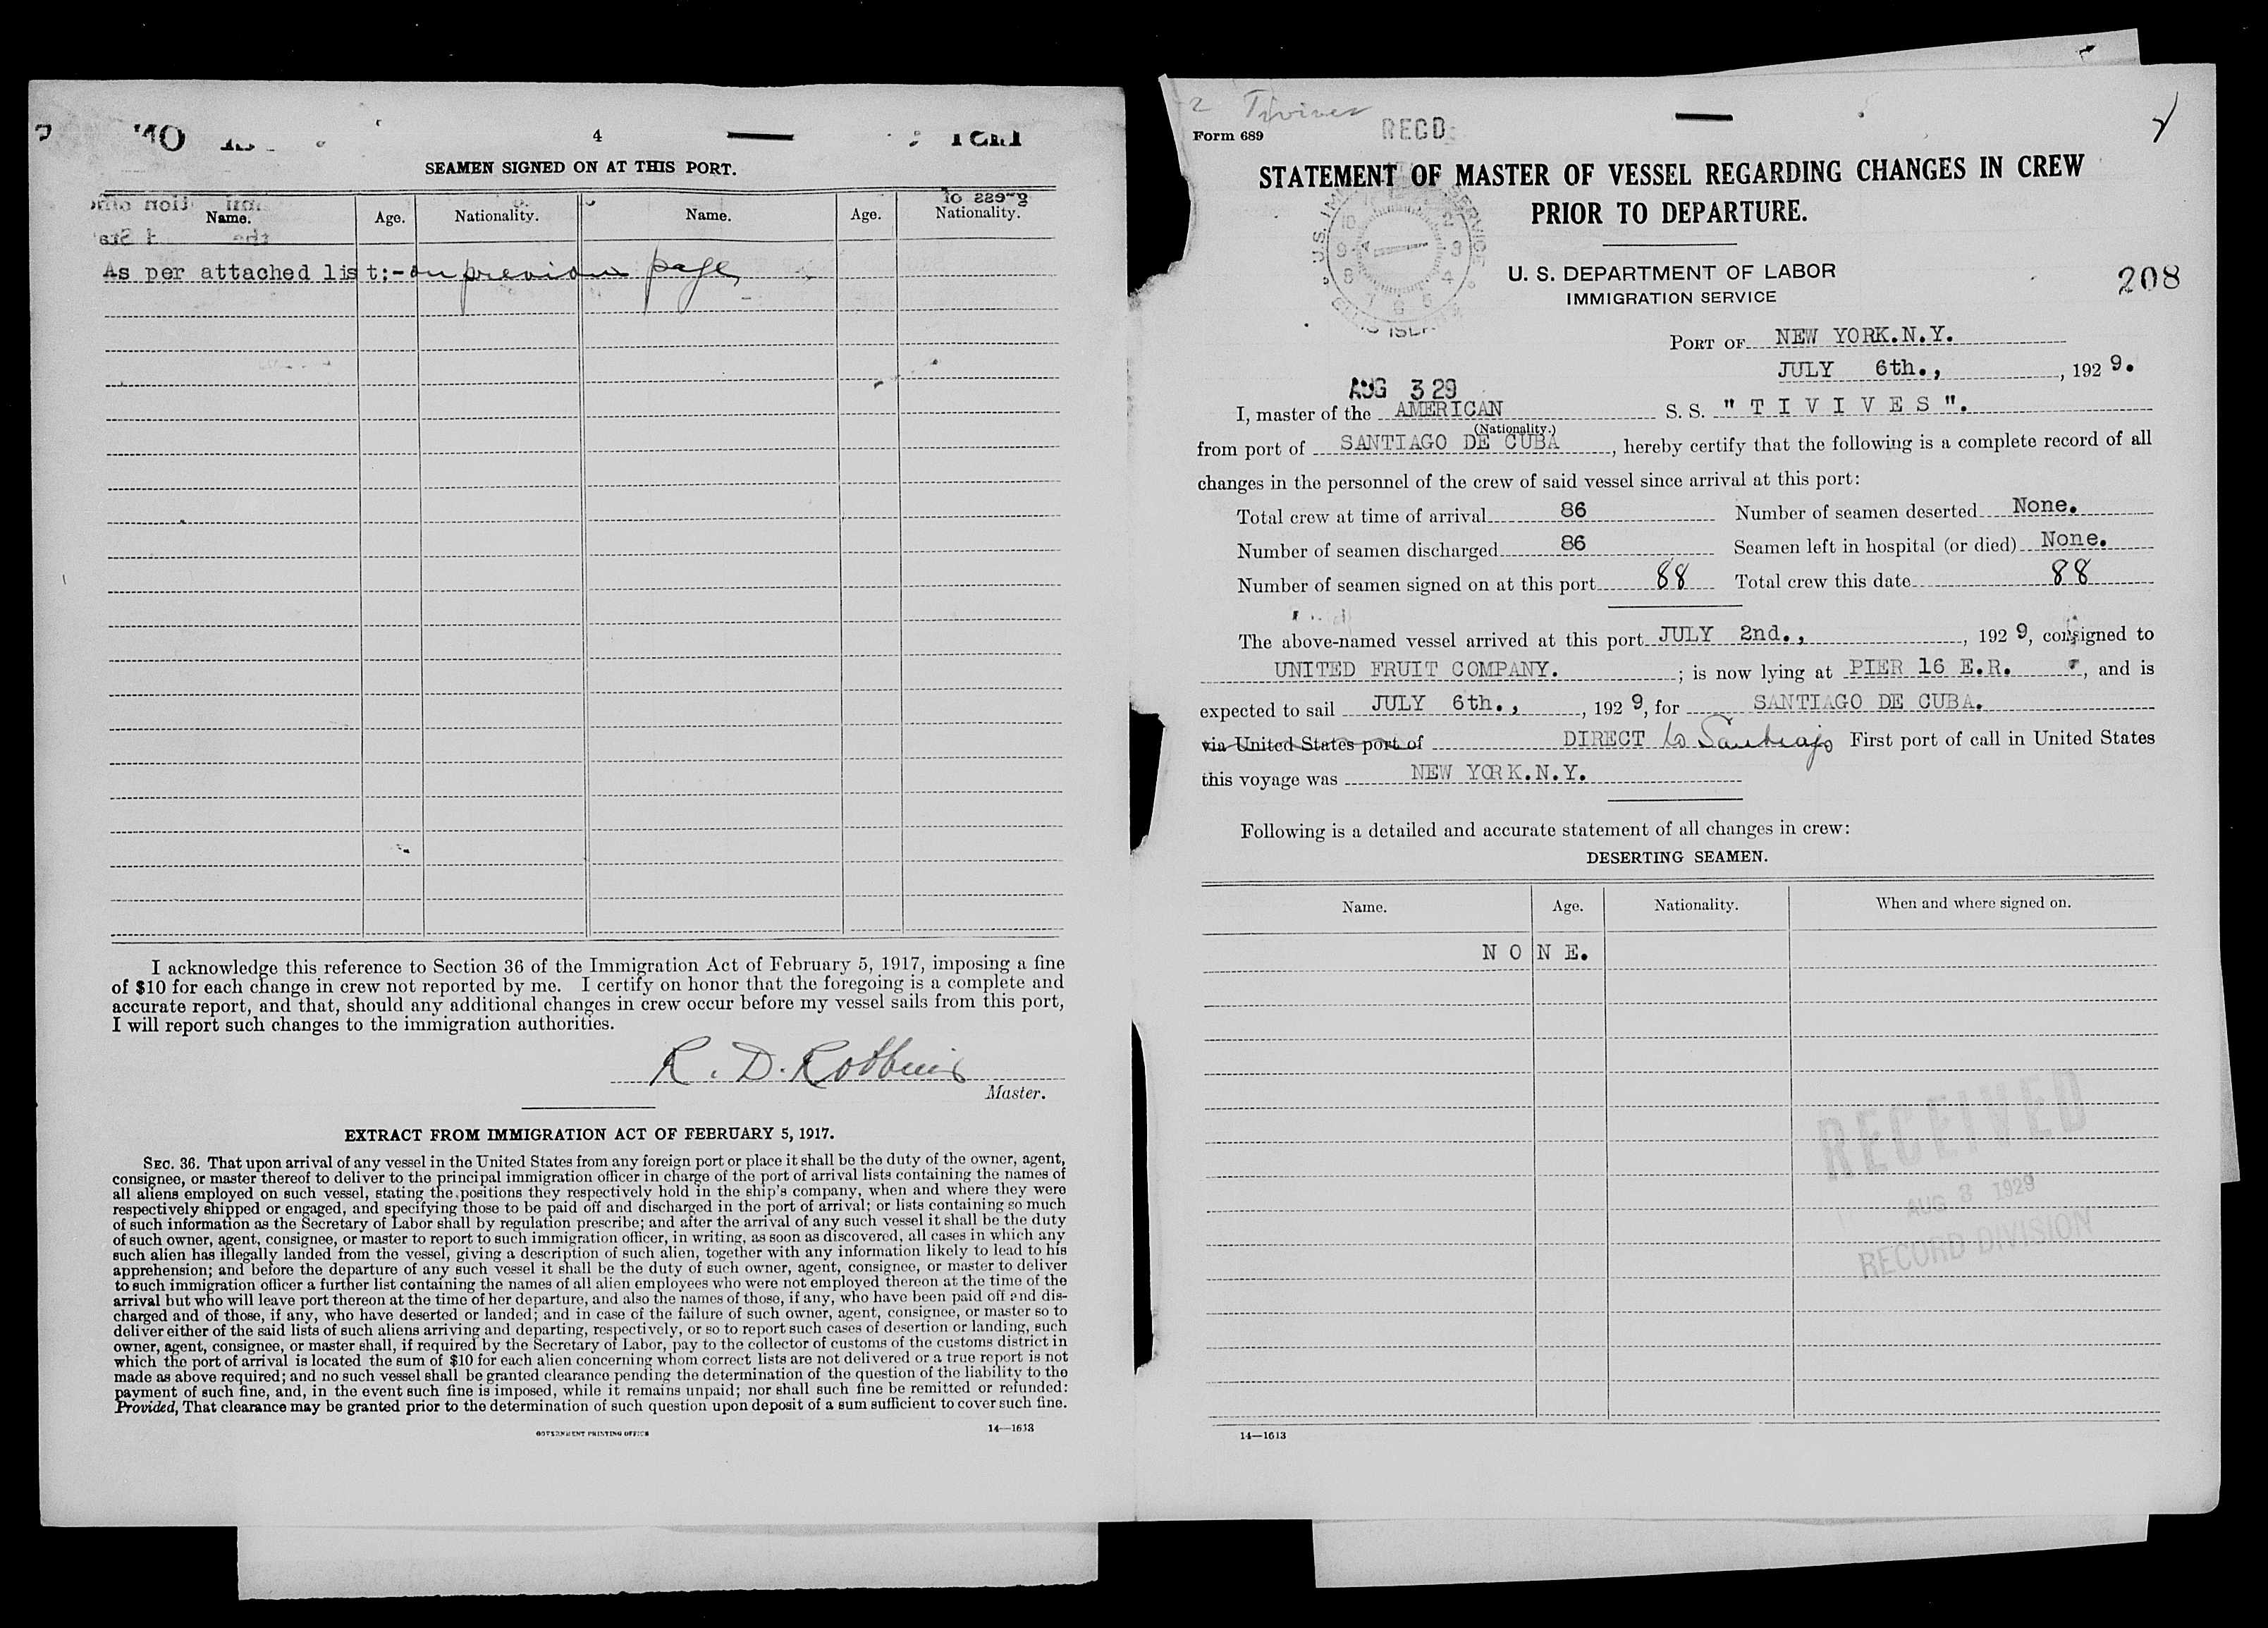 4
SEAMEN SIGNED ON AT THIS PORT.
Name. Age. Nationality. Name. Age. Nationality.
As per attached list:- on previous page
I acknowledge this reference to Section 36 of the Immigration Act of February 5, 1917, imposing a fine
of $10 for each change in crew not reported by me. I certify on honor that the foregoing is a complete and
accurate report, and that, should any additional changes in crew occur before my vessel sails from this port,
I will report such changes to the immigration authorities.
R. D. Robbins
Master.
EXTRACT FROM IMMIGRATION ACT OF FEBRUARY 5, 1917.
SEC. 36. That upon arrival of any vessel in the United States from any foreign port or place it shall be the duty of the owner, agent,
consignee, or master thereof to deliver to the principal immigration officer in charge of the port of arrival lists containing the names of
all aliens employed on such vessel, stating the positions they respectively hold in the ship's company, when and where they were
respectively shipped or engaged, and specifying those to be paid off and discharged in the port of arrival; or lists containing so much
of such information as the Secretary of Labor shall by regulation prescribe; and after the arrival of any such vessel it shall be the duty
of such owner, agent, consignee, or master to report to such immigration officer, in writing, as soon as discovered, all cases in which any
such alien has illegally landed from the vessel, giving a description of such alien, together with any information likely to lead to his
apprehension; and before the departure of any such vessel it shall be the duty of such owner, agent, consignee, or master to deliver
to such immigration officer a further list containing the names of all alien employees who were not employed thereon at the time of the
arrival but who will leave port thereon at the time of her departure, and also the names of those, if any, who have been paid off and dis-
charged and of those, if any, who have deserted or landed; and in case of the failure of such owner, agent, consignee, or master so to
deliver either of the said lists of such aliens arriving and departing, respectively, or so to report such cases of desertion or landing, such
owner, agent, consignee, or master shall, if required by the Secretary of Labor, pay to the collector of customs of the customs district in
which the port of arrival is located the sum of $10 for each alien concerning whom correct lists are not delivered or a true report is not
made as above required; and no such vessel shall be granted clearance pending the determination of the question of the liability to the
payment of such fine, and, in the event such fine is imposed, while it remains unpaid; nor shall such fine be remitted or refunded:
Provided, That clearance may be granted prior to the determination of such question upon deposit of a sum sufficient to cover such fine.
GOVERNMENT PRINTING OFFICE
14—1613
2 Tivives
Form 689
RECD
STATEMENT OF MASTER OF VESSEL REGARDING CHANGES IN CREW
PRIOR TO DEPARTURE.
U. S. DEPARTMENT OF LABOR
IMMIGRATION SERVICE
208
PORT OF NEW YORK.N.Y.
JULY 6th., , 192 9.
AUG 3 29
I, master of the AMERICAN S. S. " T I V I V E S ".
(Nationality.)
from port of SANTIAGO DE CUBA , hereby certify that the following is a complete record of all
changes in the personnel of the crew of said vessel since arrival at this port:
Total crew at time of arrival 86 Number of seamen deserted None.
Number of seamen discharged 86 Seamen left in hospital (or died) None.
Number of seamen signed on at this port 88 Total crew this date 88
The above-named vessel arrived at this port JULY 2nd., , 192 9, consigned to
UNITED FRUIT COMPANY. ; is now lying at PIER 16 E.R. , and is
expected to sail JULY 6th., , 192 9, for SANTIAGO DE CUBA.
via United States port of DIRECT to Santiago First port of call in United States
this voyage was NEW YORK.N.Y.
Following is a detailed and accurate statement of all changes in crew:
DESERTING SEAMEN.
Name. Age. Nationality. When and where signed on.
N O N E.
RECEIVED
AUG 3 1929
RECORD DIVISION
14—1613